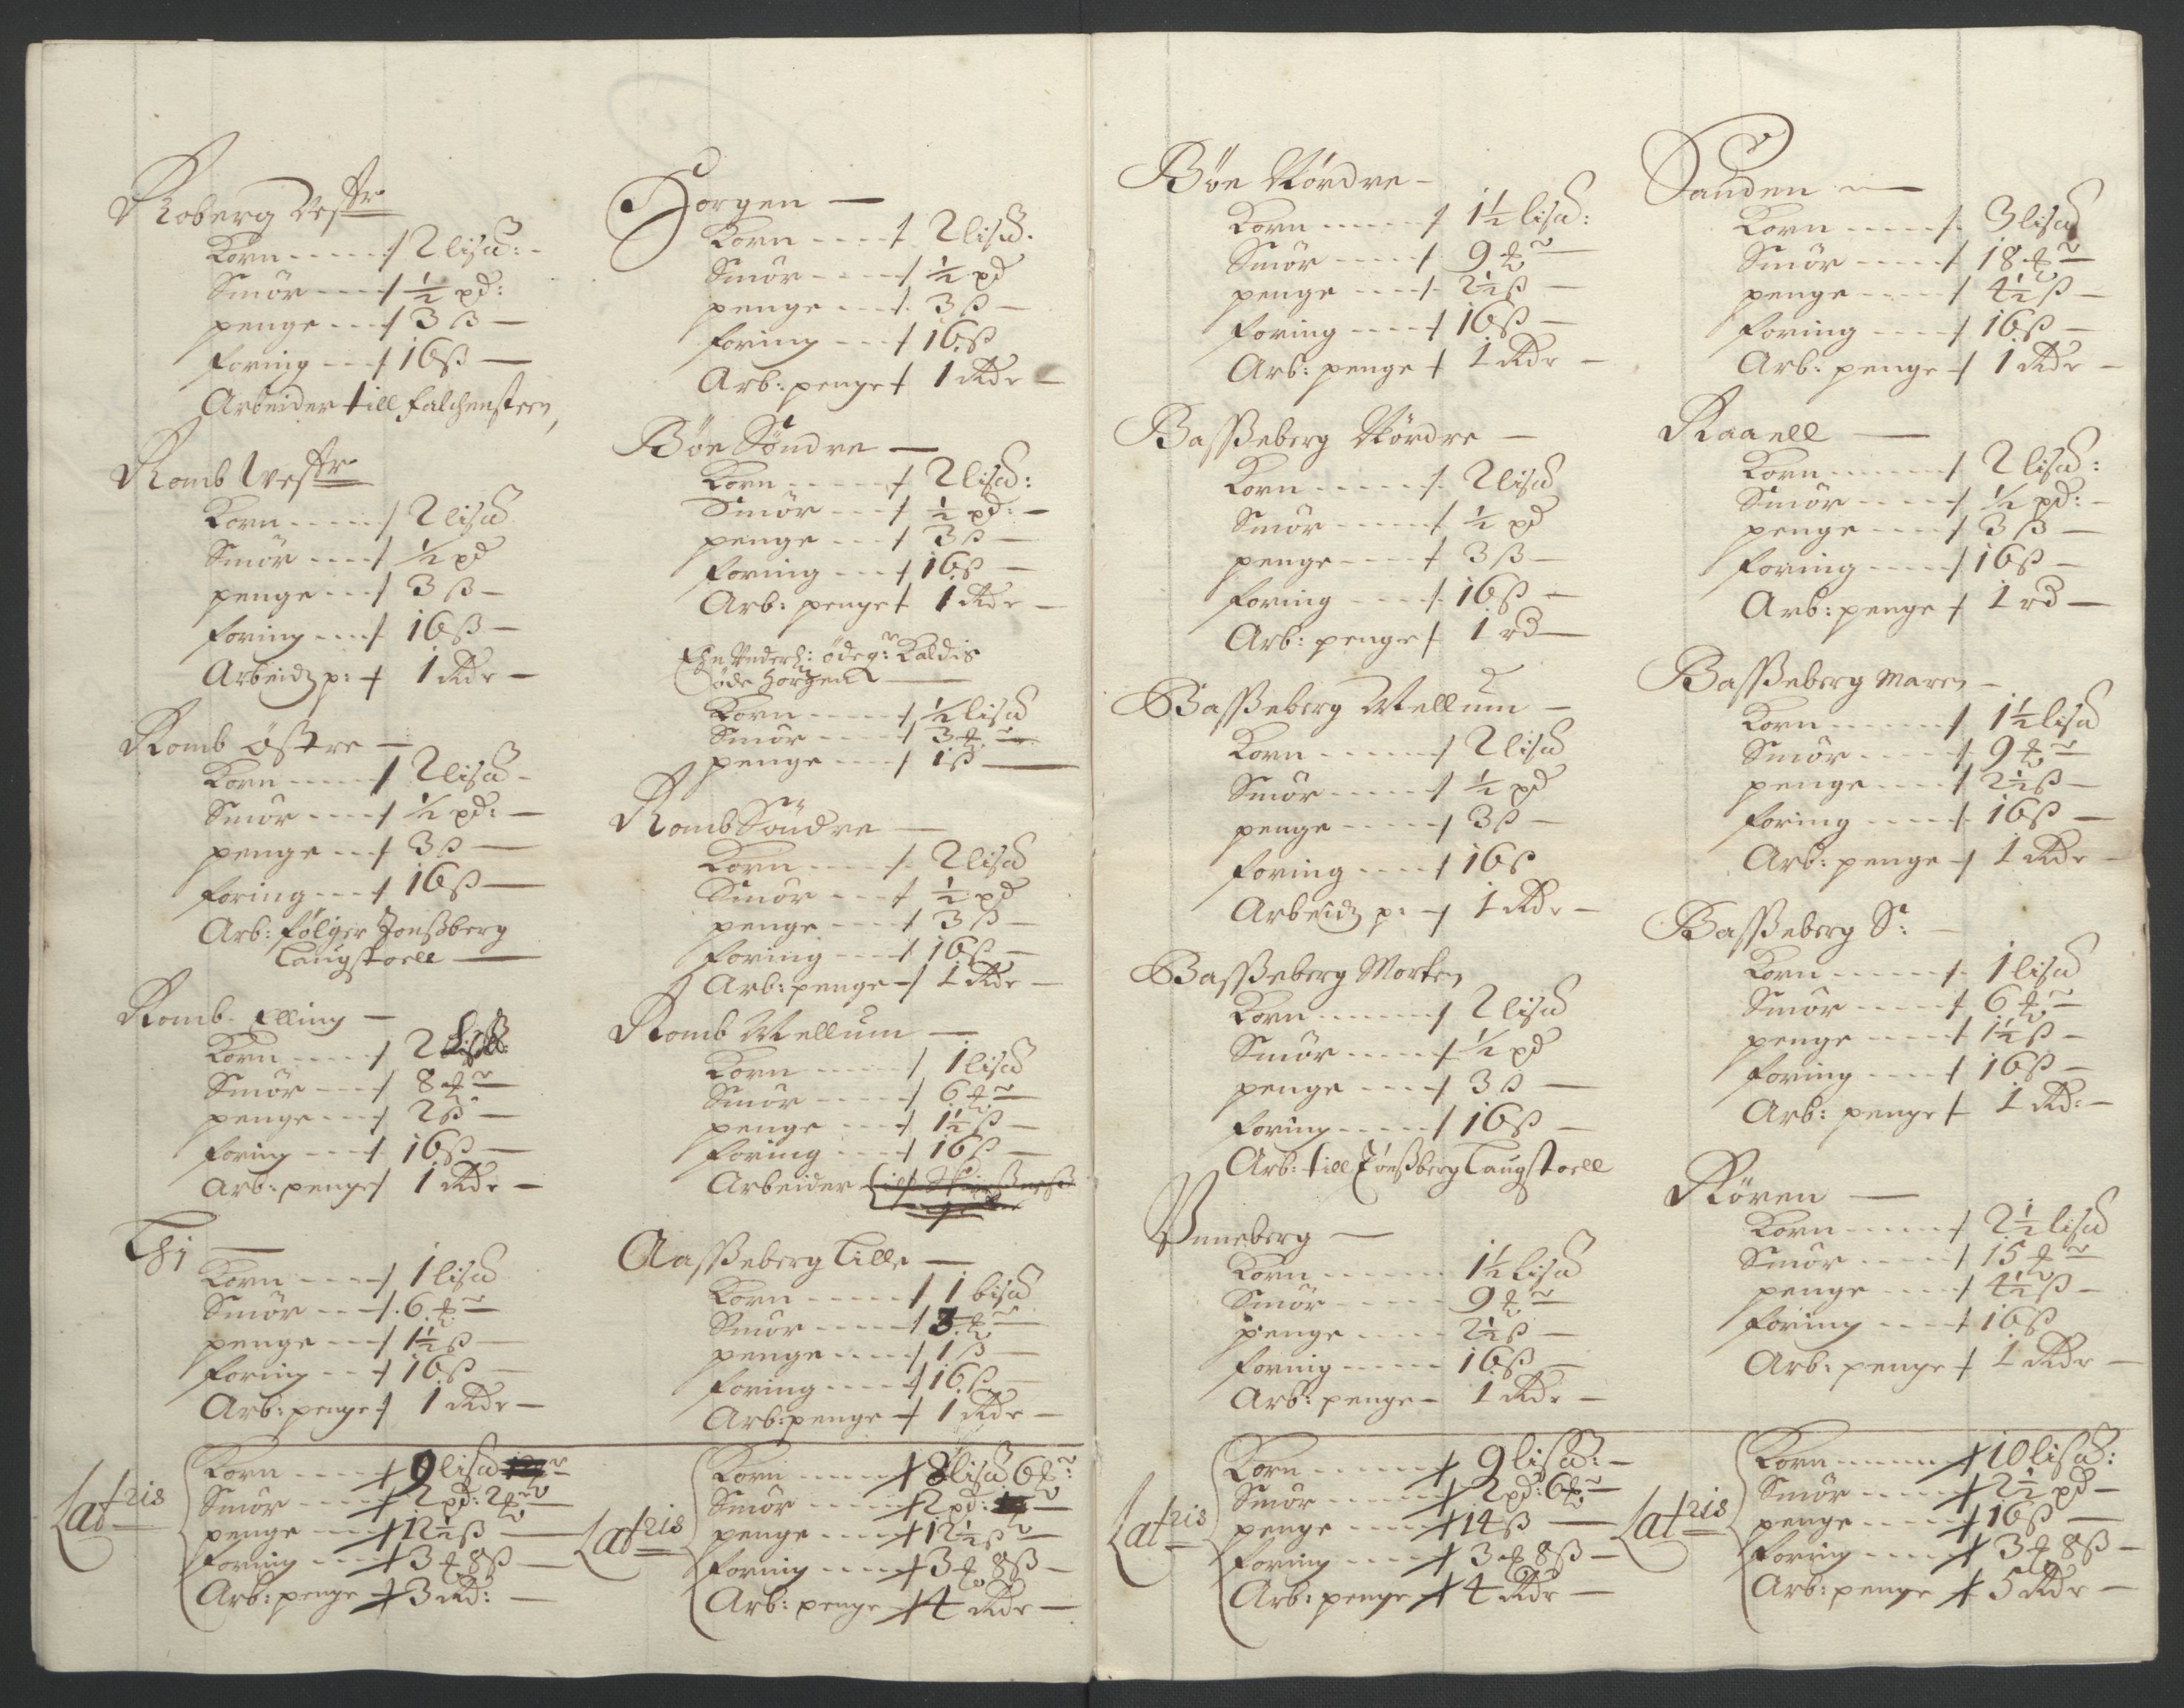 Roberg Vestr
Korn ----- 2 lisd: -
Smör ---- ½ pd:
penge --- 3 ß —
foring --- 16 ß —
Arbeider till falchensteen,
Romb Vestr
Korn ----- 2 lisd
Smör ---- ½ pd
penge --- 3 ß —
foring ---- 16 ß —
Arbeidz p: 1 Rdr —
Romb östre —
Korn ----- 2 lisd -
Smör ---- ½ pd: —
penge --- 3 ß —
foring --- 16 ß —
Arb: fölger Jonßberg
Laugstoell —
Romb. Elling —
Korn ----- 2
Smör --- 8 ℔r —
penge --- 2 ß —
foring --- 16 ß —
Arb: penge 1 Rdr —
Thj —
Korn ---- 1 lisd
Smör --- 6 ℔r —
penge --- 1½ ß —
foring --- 16 ß —
Arb: penge 1 Rdr —
Latris
Korn ---- 9 lisd
Smör ---- 2 pd: 2 ℔r —
penge ---- 12½ ß —
foring ---- 3 ℔ 8 ß —
Arb: penge 3 Rd: —
Horgen —
Korn ---- 2 lisd.
Smör ---- ½ pd
penge ---- 3 ß —
foring --- 16 ß
Arb: penge 1 Rdr —
Böe Söndre —
Korn ----- 2 lisd:
Smör --- ½ pd: —
penge --- 3 ß —
foring --- 16 ß —
Arb: penge 1 Rdr —
ödeg: Kaldis
öde Horgen —
Korn ----- ½ lisd
Smör ----- 3 ℔r —
penge ---- 1 ß —
Romb Söndre —
Korn ----- 2 lisd
Smör ---- ½ pd
penge ---- 3 ß —
foring ---- 16 ß —
Arb: penge 1 Rdr —
Romb Mellum —
Korn ----- 1 lisd
Smör ----- 6 ℔r —
penge ---- 1½ ß —
foring ---- 16 ß —
Arbeider
Aasßeberg Lille —
Korn ----- 1 bisd
Smör ----- 3 ℔r —
penge ----- 1 ß —
foring ---- 16 ß —
Arb: penge 1 Rdr —
Latris
Korn ----- 8 lisd 6 ℔r:
Smör ----- 2 pd:
penge ----- 12½ ß —
foring ---- 3 ℔ 8 ß —
Arb: penge 4 Rdr —
Böe Nördre —
Korn ----- 1½ lisd:
Smör ---- 9 ℔r —
penge ---- 2½ ß —
foring ---- 16 ß —
Arb: penge 1 Rdr —
Basßeberg Nördre —
Korn ----- 2 lisd
Smör ----- ½ pd
penge ---- 3 ß —
foring ---- 16 ß —
Arb: penge 1 rd —
Basßeberg Mellum —
Korn ------ 2 lisd
Smör ----- ½ pd
penge ----- 3 ß —
foring ---- 16 ß
Arbeidz p: 1 Rdr —
Basßeberg Morten
Korn ------ 2 lisd
Smör ----- ½ pd
penge ---- 3 ß —
foring ----- 16 ß —
Arb: till Jönßberg Laugstoell
Unneberg —
Korn ------ 1½ lisd
Smör ----- 9 ℔r —
penge ---- 2½ ß —
foring ----- 16 ß —
Arb: penge - 1 Rdr —
Latris
Korn ------ 9 lisd: —
Smör ------ 2 pd: 6 ℔r —
penge ----- 14 ß —
foring ---- 3 ℔ 8 ß —
Arb: penge 4 Rdr —
Sanden —
Korn ----- 3 lisd
Smör ----- 18 ℔r —
penge ----- 4½ ß —
foring ---- 16 ß —
Arb: penge 1 Rdr —
Raaell —
Korn ------ 2 lisd:
Smör ----- ½ pd: —
penge ---- 3 ß —
foring ----- 16 ß —
Arb: penge 1 rd —
Basßeberg Maren —
Korn ------ 1½ lisd
Smör ----- 9 ℔r —
penge ---- 2½ ß —
foring ----- 16 ß —
Arb: penge 1 Rdr —
Basßeberg S: —
Korn ------ 1 lisd
Smör ----- 6 ℔r —
penge ----- 1½ ß —
foring ---- 16 ß —
Arb: penge 1 Rd: —
Rören —
Korn ----- 2½ lisd
Smör ----- 15 ℔r —
penge ----- 4½ ß —
foring ---- 16 ß
Arb: penge 1 Rdr —
Latris
Korn ------ 10 lisd:
Smör ----- 2½ pd —
penge ----- 16 ß —
foring ---- 3 ℔ 8 ß —
Arb: penge 5 Rdr —